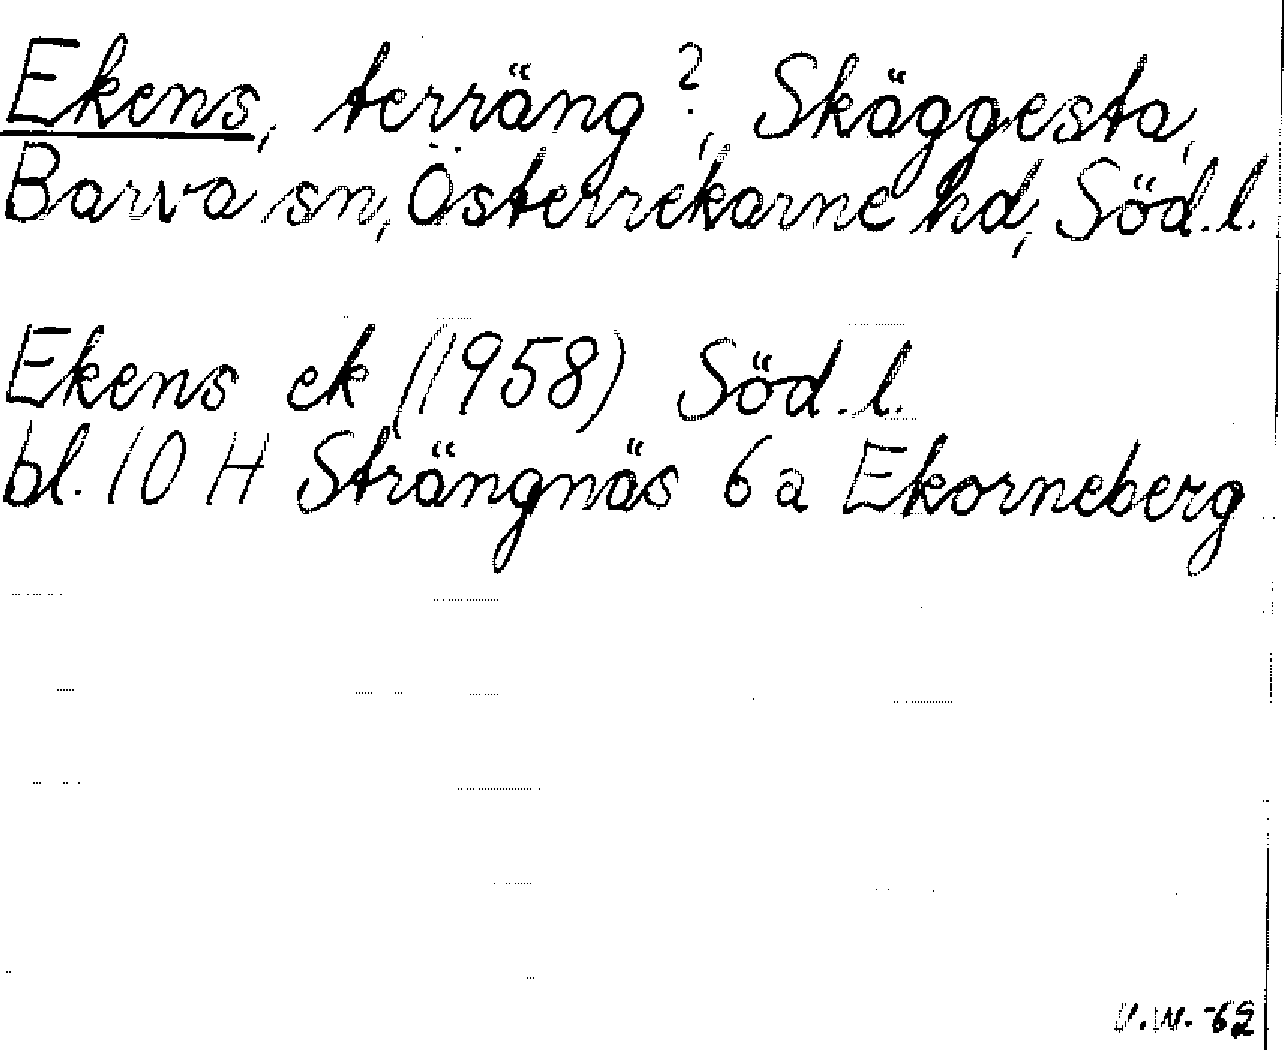 Ekens, terräng?, Skäggesta,
Barva sn, Österrekarne hd, Söd.l.
Ekens ek (1958) Söd.l.
bl. 10 H Strängnäs 6 a Ekorneberg
V.W. -62